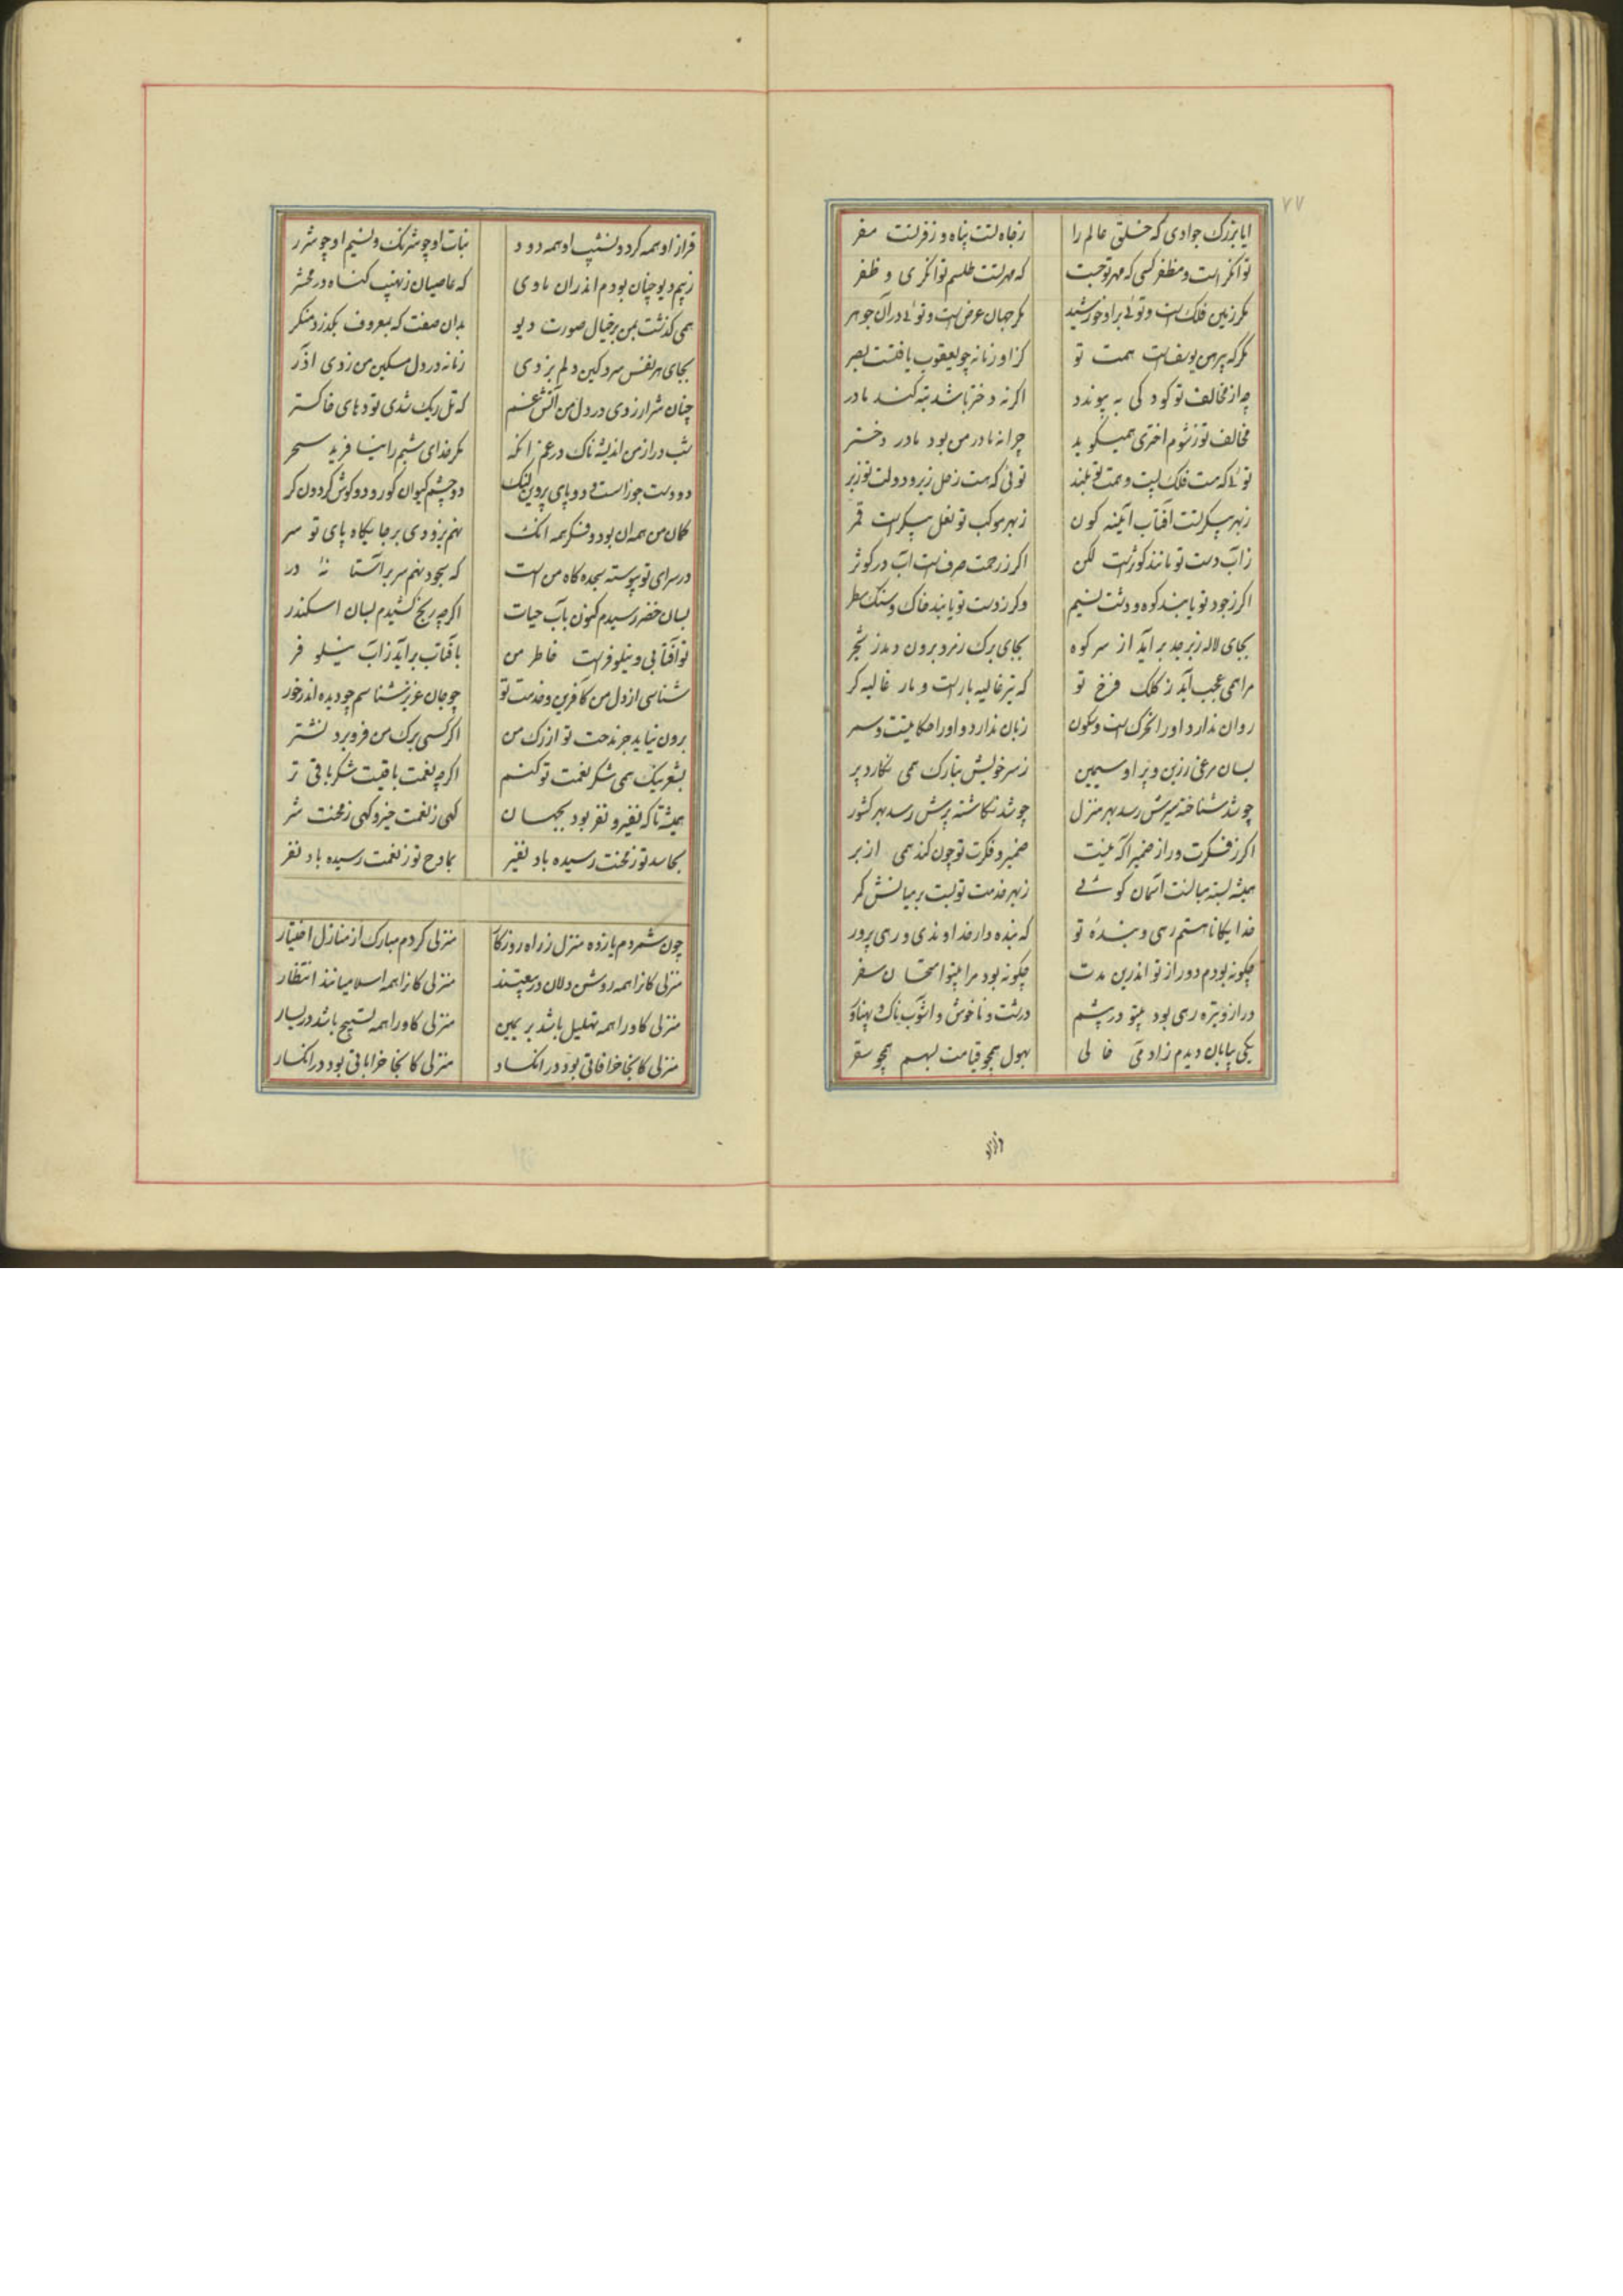 ۷۷
ایا بزرک جوادی که خلق عالم را زجاه تست پناه و زفر تست مفر
توانکر است و مظفر کسی که مهر تو جست که مهر تست طلسم توانکری و ظفر
مکر زمین فلک است و توئی براو خورشید مکر جهان عرض است و توئی در آن جوهر
مکر که پیرهن یوسف است همت تو کز او زمانه چو یعقوب یافتست بصر
چه از مخالف تو کودکی به پیوندد اکر نه دختر باشد تبه کند مادر
مخالف تو زشوم اختری همیکوید چرا نه مادر من بود مادر دختر
توئی که هست فلک پست و همت تو بلند توئی که هست زحل زیر و دولت تو زبر
زبهر پیکر تست آفتاب آینه کون زبهر موکب تو نعل پیکر است قمر
زآب دست تو مانند کوثر است لکن اکر زرحمت صرف است آب در کوثر
اکر زجود تو یابند کوه و دشت نسیم وکر زدست تو یابند خاک و سنک مطر
بجای لاله زبرجد برآید از سر کوه بجای برک زمرد برون دمد ز شجر
مرا همی عجب آید ز کلک فرخ تو که نیز غالیه بار است و مار غالیه کر
روان ندارد و اورا تحرک است و سکون زبان ندارد و اورا حکایتست و سمر
بسان مرغی زرین و پر او سیمین زسر خویش بتارک همی نکارد پر
چو شد شناخته سیرش رسد بهر منزل چو شد نکاشته پرش رسد بهر کشور
اکر زفکرت و راز ضمیر آکه نیست ضمیر و فکرت تو چون کند همی از بر
همیشه بسته میانست آسمان کوئی زبهر خدمت تو بست بر میانش کمر
خدایکانا هستم رهی و بنده تو که بنده دار خداوندی و رهی پرور
چکونه بودم دور از تو اندرین مدت چکونه بود مرا بیتو امتحان سفر
دراز و تیره رهی بود بیتو در پیشم درشت و ناخوش و آشوب ناک و پهناور
یکی بیابان دیدم زآدمی خالی بهول همچو قیامت بسهم همچو سقر
فراز
فراز او همه کرد و نشیب او همه دود نبات او چو شرنک و نسیم او چو شرر
زبیم دیو چنان بودم اندران وادی که عاصیان زنهیب کناه در محشر
همی کذشت بمن بر خیال صورت دیو بدان صفت که بمعروف بکذرد منکر
بجای هر نفس سرد کین دلم بزدی زمانه در دل مسکین من زدی آذر
چنان شرار زدی در دل من آتش غم که تل ریک شدی توده‌های خاکستر
شب دراز من اندیشه ناک در غم آنکه مکر خدای شبم را نیافرید سحر
دو دست جوزا سست و دو پای پروین لنک دو چشم کیوان کور و دو کوش کردون کر
کمان من همه آن بود و فکر همه آنک نهم بزودی بر جایکاه پای تو سر
درسرای تو پیوسته سجده کاه من است که سجود نهم سر بر آستانه در
بسان خضر رسیدم کنون بآب حیات اکرچه رنج کشیدم بسان اسکندر
تو آفتابی و نیلوفر است خاطر من بآفتاب برآید زآب نیلوفر
شناسی از دل من کآفرین و خدمت تو چو جان عزیز شناسم چو دیده اندر خور
برون نیاید جز مدحت تو از رک من اکر کسی برک من فرو برد نشتر
بشعر نیک همی شکر نعمت تو کنم اکرچه نعمت باقیست شکر باقی تر
همیشه تا که نفیر و نفر بود بجهان کهی زنعمت خیر و کهی زمحنت شر
بحاسد تو زمحنت رسیده باد نفیر بمادح تو زنعمت رسیده باد نفر
چون شمردم یازده منزل ز راه روزکار منزلی کردم مبارک از منازل اختیار
منزلی کانرا همه روشن دلان درعبتند منزلی کانرا همه اسلامیانند انتظار
منزلی کاورا همه تهلیل باشد بر یمین منزلی کاورا همه تسبیح باشد در یسار
منزلی کانجا خرافاتی بود در انکساد منزلی کانجا خراباتی بود در انکسار